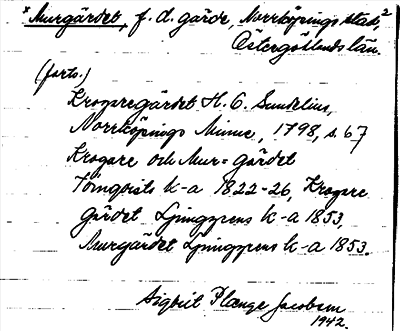 * Murgärdet, f. d. gärde, Norrköpings stad, 2
Östergötlands län.
(forts.)
Krogaregärdet H. O. Sundelius,
Norrköpings Minne, 1798, s. 67
Krogare och Mur=gärdet
Törnqvists k-a 1822-26, Krogare
gärdet Ljunggrens k-a 1853,
Murgärdet Ljunggrens k-a 1853.
Sigbrit Plænge Jacobson
1942.